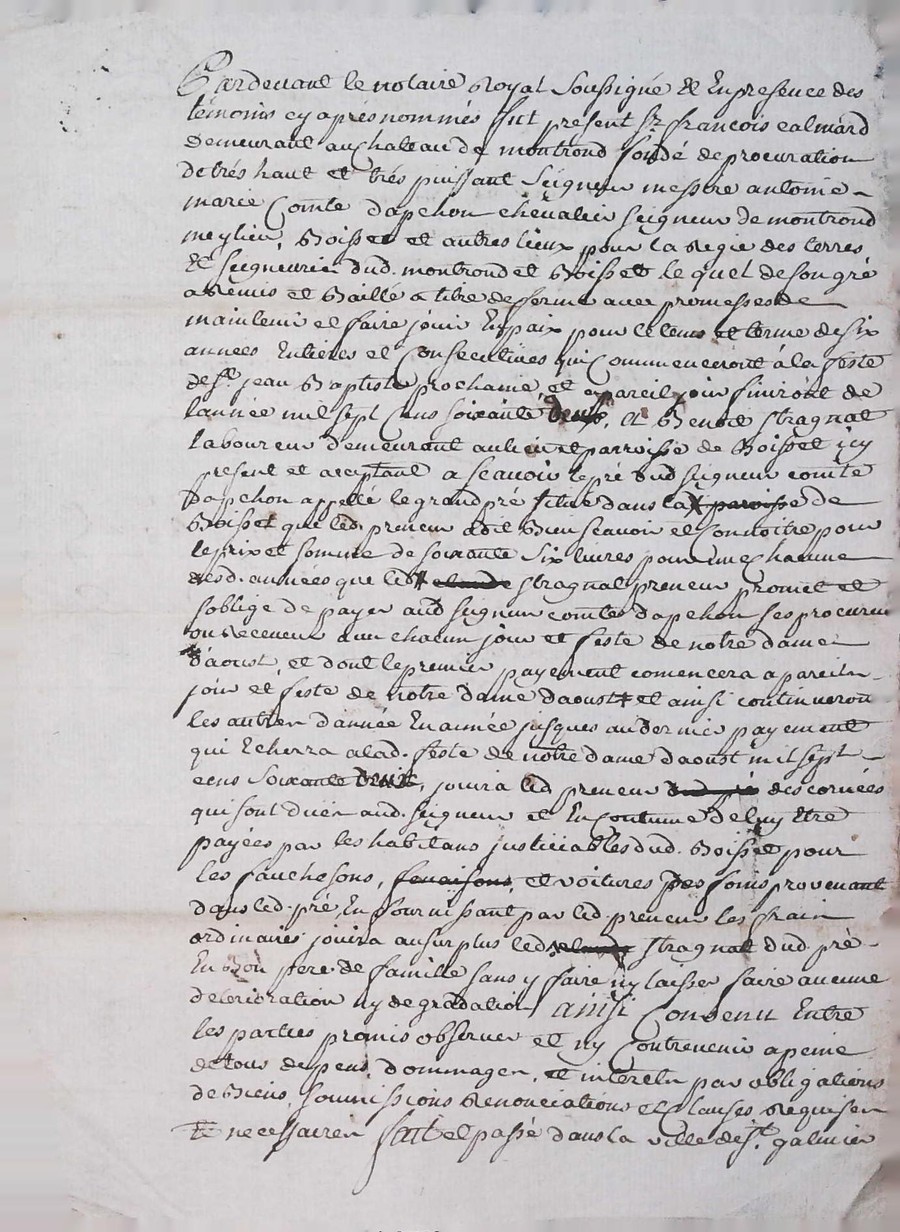 Pardevant le notaire Royal Soussigné Et En presence des
témoins cy aprés nommés fut present Sr. françois calmard
Demeurant au chateau de montrond fondé de procuration
de trés haut et trés puissant Seigneur messire antoine
marie Comte d'apchon chevalier seigneur de montrond
meylieu, Boisset et autres lieux pour la Regie des terres
Et Seigneuries dud. montrond et Boisset le quel de son gré
a Remis et Baillé a titre de ferme avec promesses de
maintenir et faire jouir En paix pour le tems et terme de six
années Entieres et Consecutives qui Commenceront á la feste
de st. jean Baptiste prochaine et a pareil jour finiront de
l'année mil sept Cens soixante , a Benoit Stragnat
laboureur demeurant au lieu et parroisse de Boisset icy
present et acceptant a scavoir le pré dud seigneur comte
Dapchon appellé le grand pré situé dans la paroisse de
Boisset que led. preneur a dit Bien scavoir et connoitre pour
le prix et somme de soixante six livres pour une chacune
desd. années que led Stragnat preneur promet et
s'oblige de payer aud seigneur comte d'apchon ses procureur
ou Receveur a un chacun jour et feste de notre dame
d'aoust, et dont le premier payement comencera a pareil
jour et feste de notre dame daoust et ainsi continueront
les autres d'année En année jusques au dernier payement
qui Echerra a lad. feste de notre dame daoust mil sept
cens Soixante , jouira led preneur dud pré des corvées
qui sont duës aud. seigneur et En Coutume de luy Etre
payées par les habitans justiciables dud. Boisset pour
les fauchesons, fenaisons, et voitures des foins provenant
dans led. pré En fournissant par led preneur les frain
ordinaires jouira au surplus led Stragnat dud pré
En Bon pere de famille sans y faire ny laisser faire aucune
deterioration ny degradation ainsi Convenu Entre
les parties promis observer et ny Contrevenir a peine
de tous depens, dommages, et interets par obligations
de Biens, soumissions Renonciations et Clauses Requises
Et necessaires fait et passé dans la ville de st. galmier